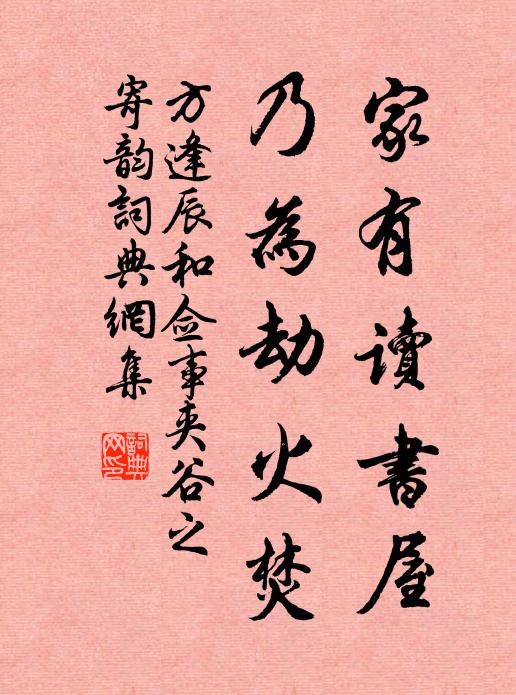 家有讀書屋
乃為劫火焚
方逢辰和僉事夾谷之
寄韵詞典網集
詞典
网印